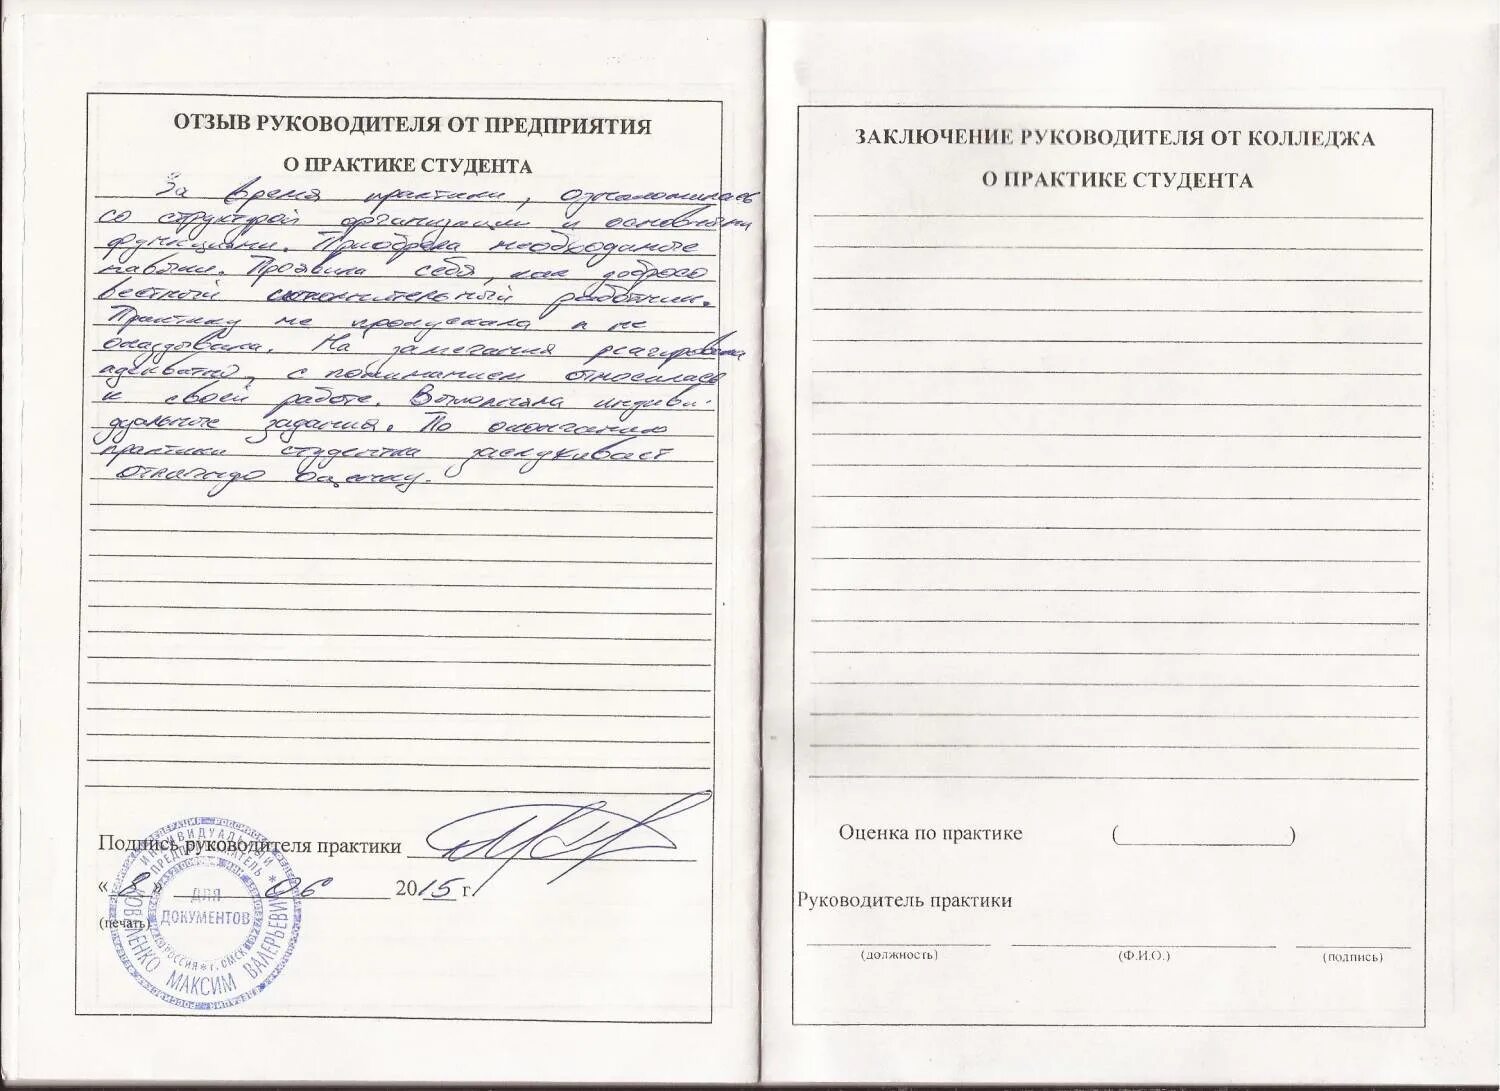 ОТЗЫВ РУКОВОДИТЕЛЯ ОТ ПРЕДПРИЯТИЯ
О ПРАКТИКЕ СТУДЕНТА
За время практики, ознакомилась
со структурой организации и основными
функциями. Приобрела необходимые
навыки. Проявила себя, как добросо
вестный исполнительный работник.
Практику не пропускала и не
опаздывала. На замечания реагировала
адекватно, с пониманием относилась
к своей работе. Выполняла индиви-
дуальные задания. По окончанию
практики студентка заслуживает
отличную оценку.
Подпись руководителя практики
« 8 » 06 2015 г.
(печать)
ИНДИВИДУАЛЬНЫЙ
ПРЕДПРИНИМАТЕЛЬ
ДЛЯ
ДОКУМЕНТОВ
РОССИЯ * г. ОМСК
МАКСИМ ВАЛЕРЬЕВИЧ
ЗАКЛЮЧЕНИЕ РУКОВОДИТЕЛЯ ОТ КОЛЛЕДЖА
О ПРАКТИКЕ СТУДЕНТА
Оценка по практике ( )
Руководитель практики
(должность) (Ф.И.О.) (подпись)